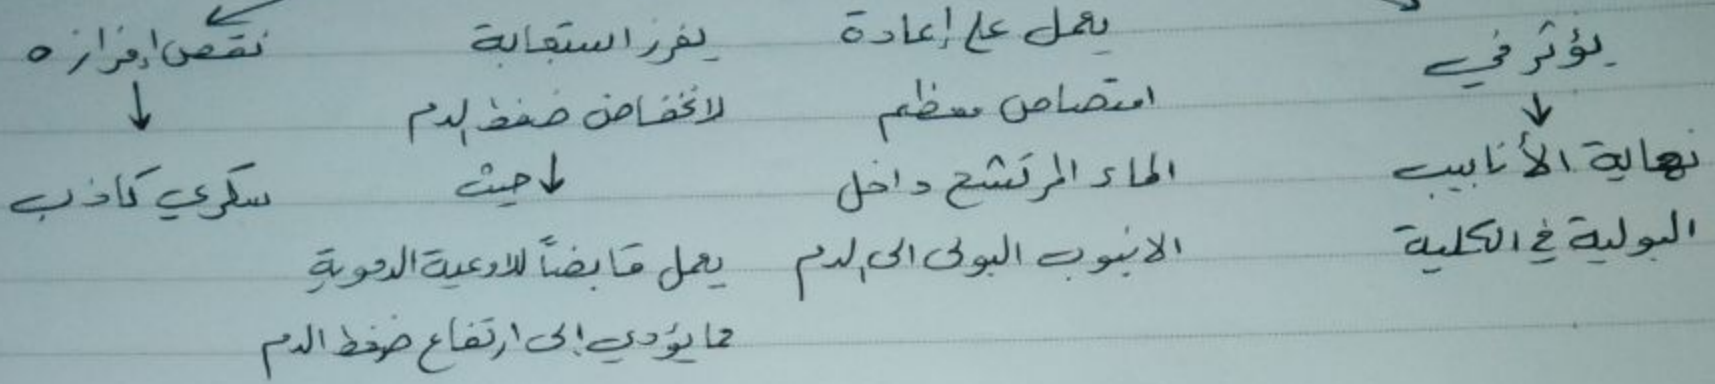 يؤثر في
↓
نهاية الأنابيب
البولية في الكلية
يعمل على إعادة
امتصاص معظم
الماء المرتشح داخل
الانبوب البولي الى الدم
يفرز استجابة
لانخفاض ضغط الدم
↓ حيث
يعمل قابضاً للاوعية الدموية
مما يؤدي إلى ارتفاع ضغط الدم
نقص إفرازه
↓
سكري كاذب